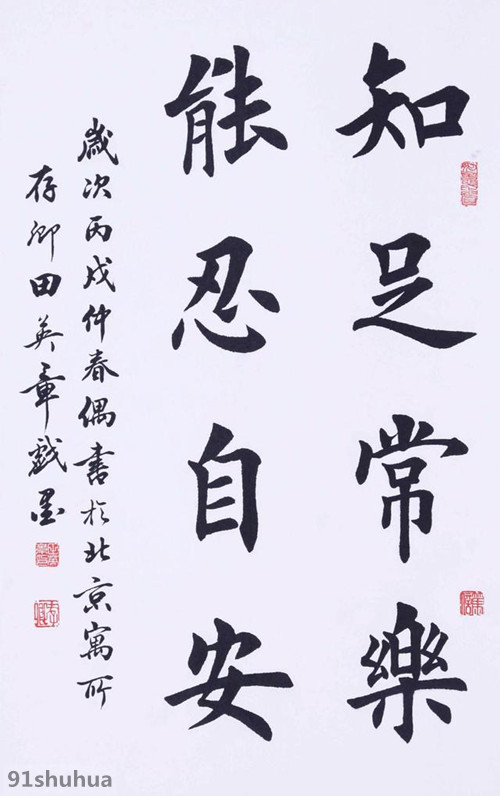 知足常樂
能忍自安
歲次丙戌仲春偶書於北京寓所
存卿田英章戲墨
91shuhua